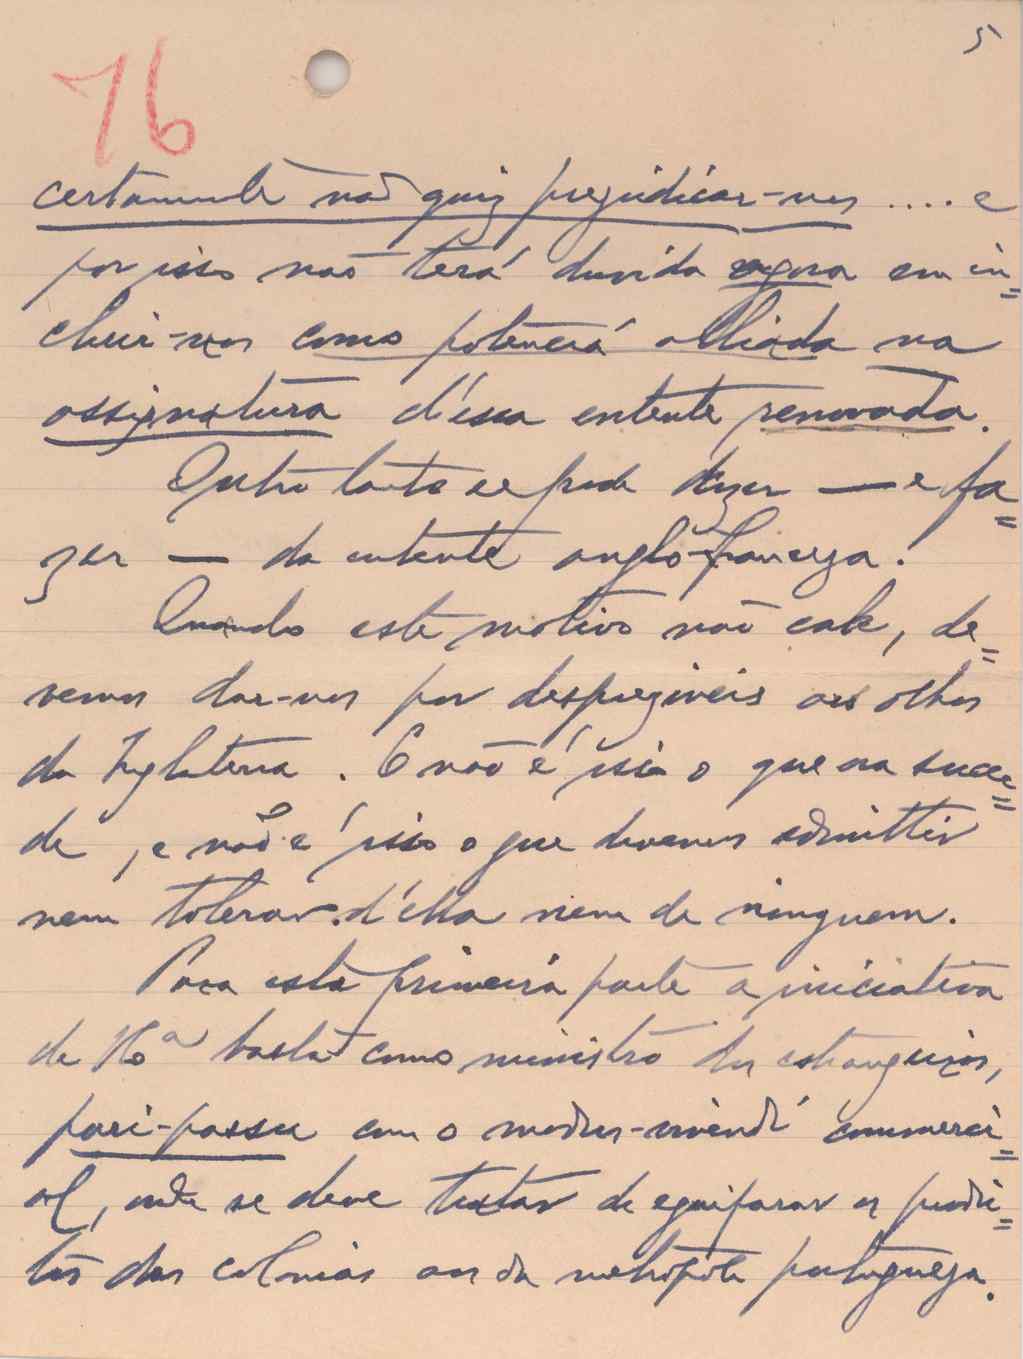 5
76
certamente não quiz prejudicar-nos .... e
por isso não terá duvida agora em in=
cluir-nos como potencia alliada na
assignatura d'essa entente renovada.
Outro tanto se pode dizer — e fa=
zer — da entente anglo-franceza.
Quando este motivo não cale, de=
vemos dar-nos por despreziveis aos olhos
da Inglaterra. E não é isso o que na succe=
de, e não é isso o que devemos admittir
nem tolerar d'ella nem de ninguem.
Para esta primeira parte a iniciativa
de basta como ministro dos estrangeiros,
pari-passu com o modus-vivendi commerci=
al, onde se deve tratar de equiparar os produ=
tos das colonias aos da metropole portugueza.